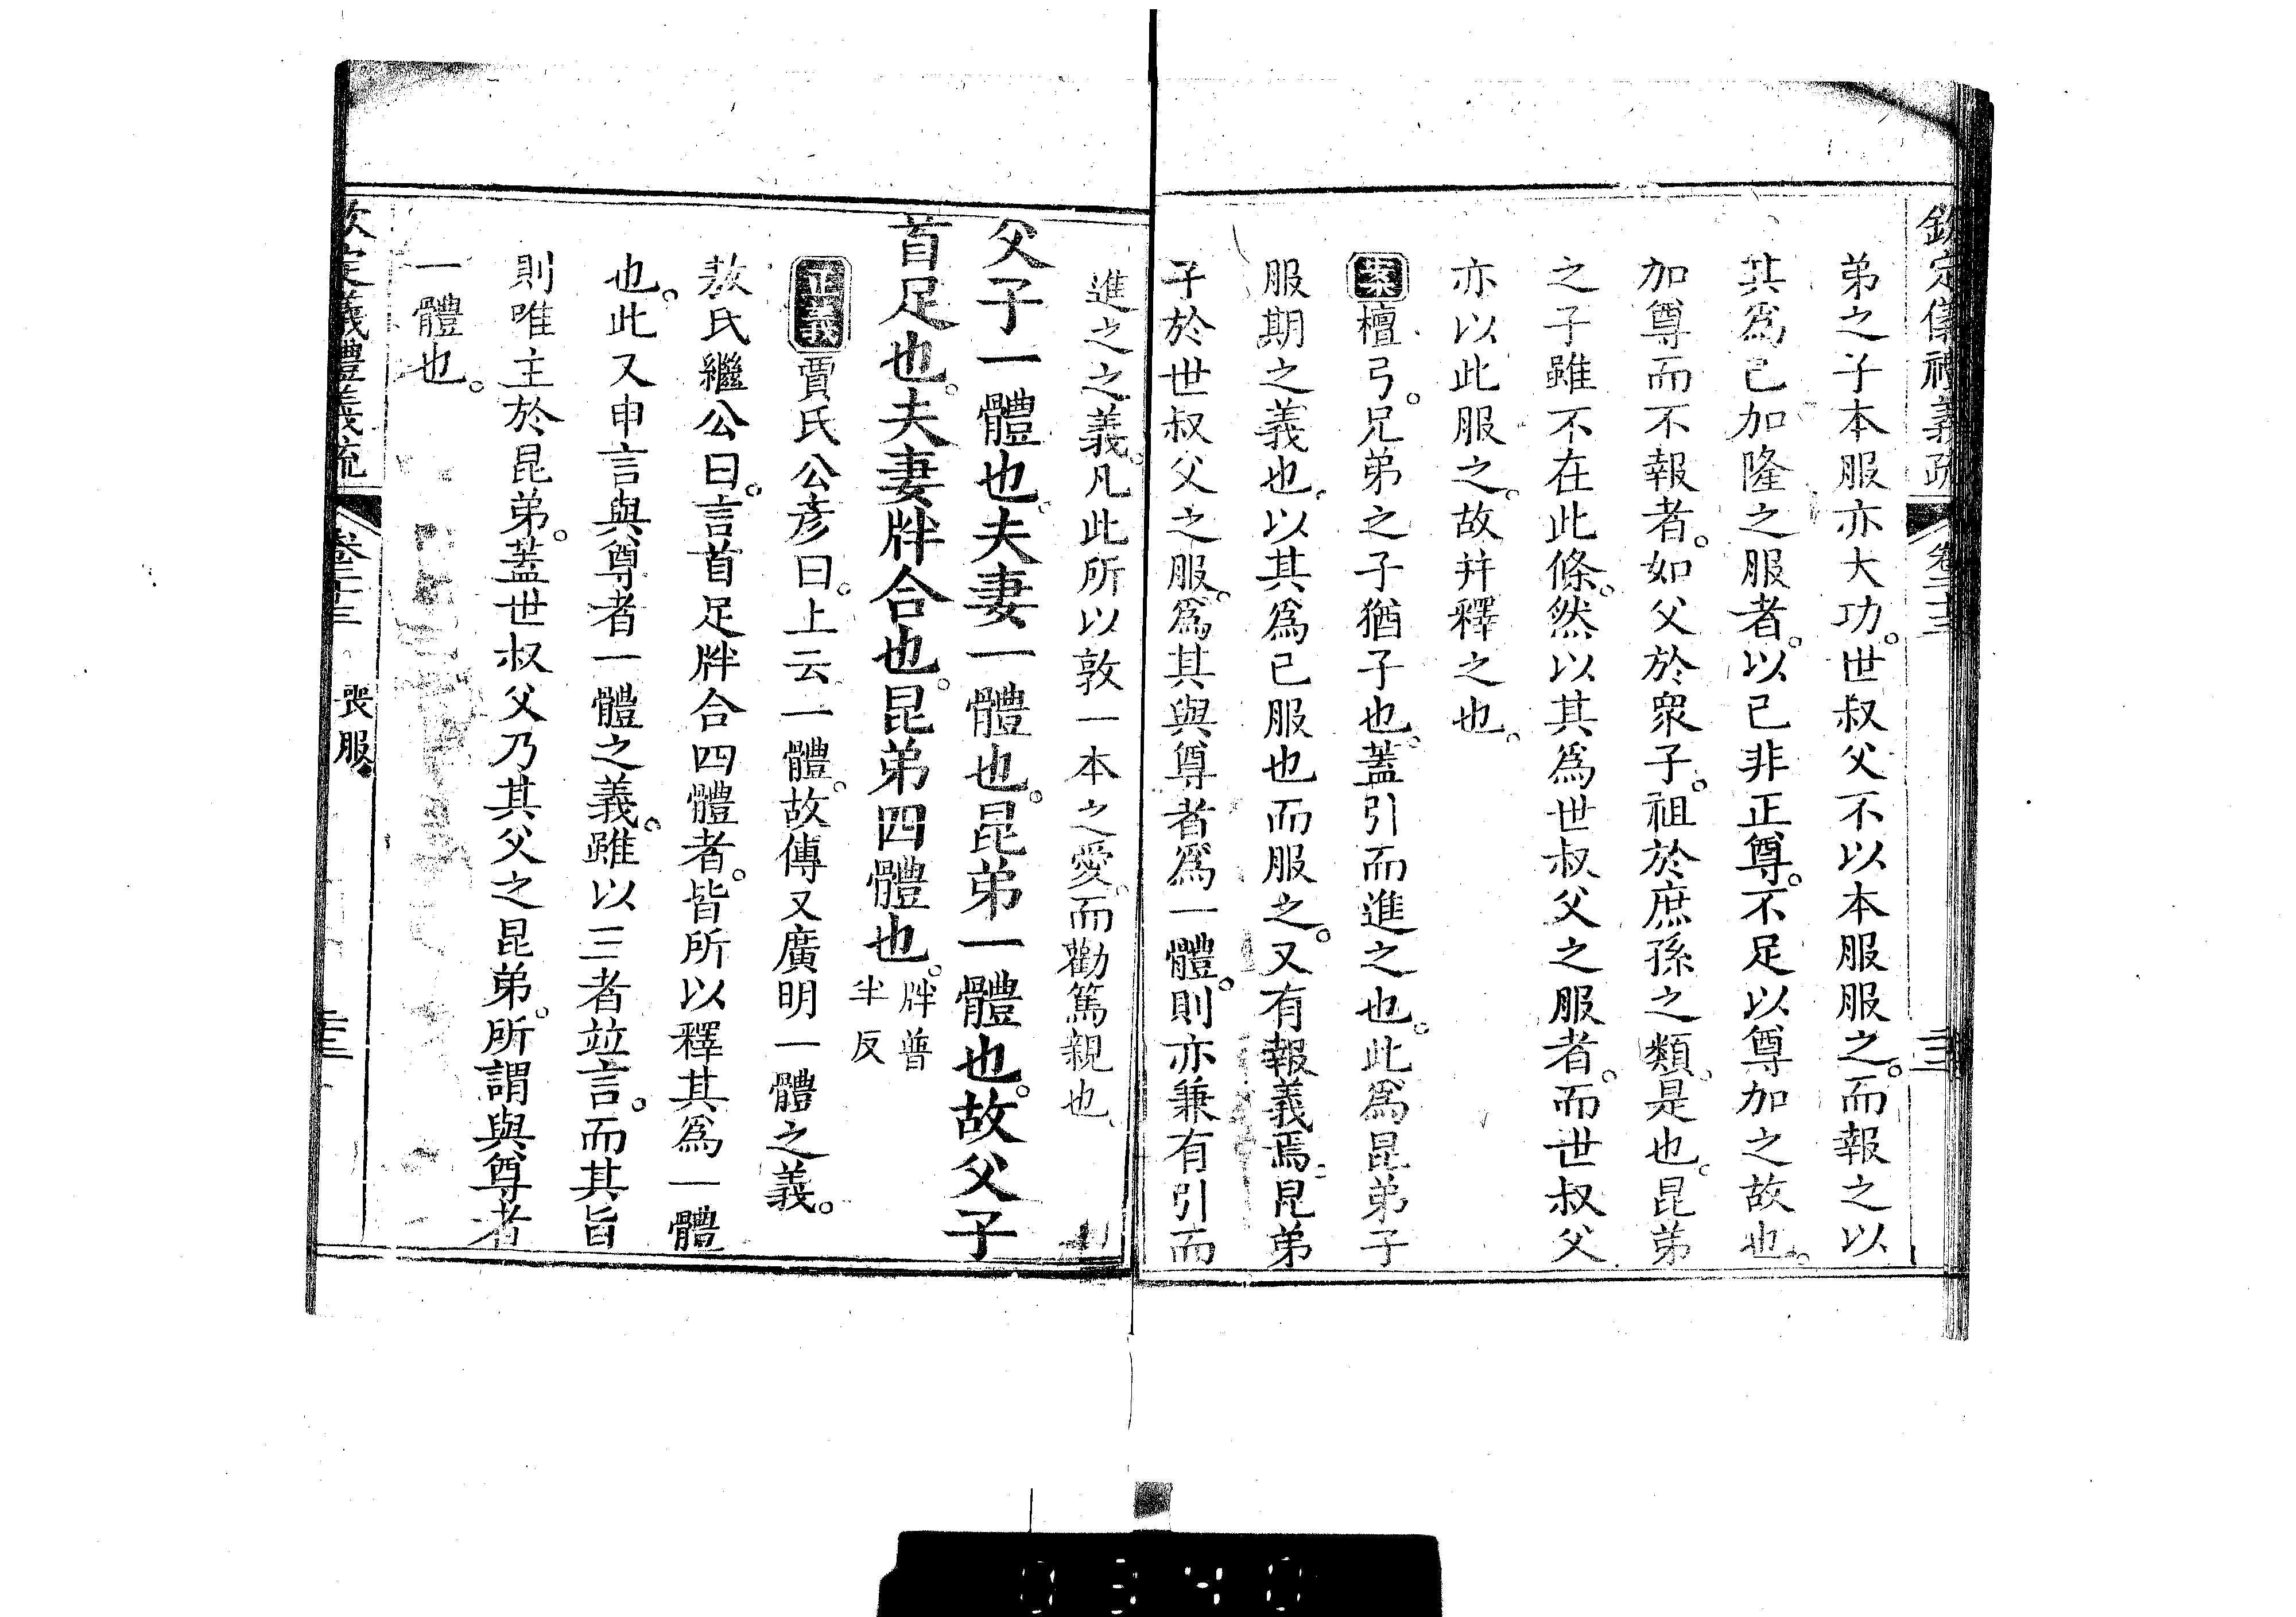 欽定儀禮義疏 卷二十三
弟之子本服亦大功。世叔父不以本服服之。而報之以
其爲己加隆之服者。以己非正尊。不足以尊加之故也。
加尊而不報者。如父於衆子。祖於庶孫之類。是也。昆弟
之子雖不在此條。然以其爲世叔父之服者。而世叔父
亦以此服之。故幷釋之也。
案檀弓。兄弟之子猶子也。蓋引而進之也。此爲昆弟子
服期之義也。以其爲己服也而服之。又有報義焉。昆弟
子於世叔父之服。爲其與尊者爲一體。則亦兼有引而
進之之義。凡此所以敦一本之愛。而勸篤親也。
父子一體也。夫妻一體也。昆弟一體也。故父子
首足也。夫妻牉合也。昆弟四體也。牉普半反
正義賈氏公彦曰。上云一體。故傳又廣明一體之義。
敖氏繼公曰。言首足牉合四體者。皆所以釋其爲一體
也。此又申言與尊者一體之義。雖以三者竝言。而其旨
則唯主於昆弟。蓋世叔父乃其父之昆弟。所謂與尊者
一體也。
欽定義禮義疏 卷二十三 喪服
0340